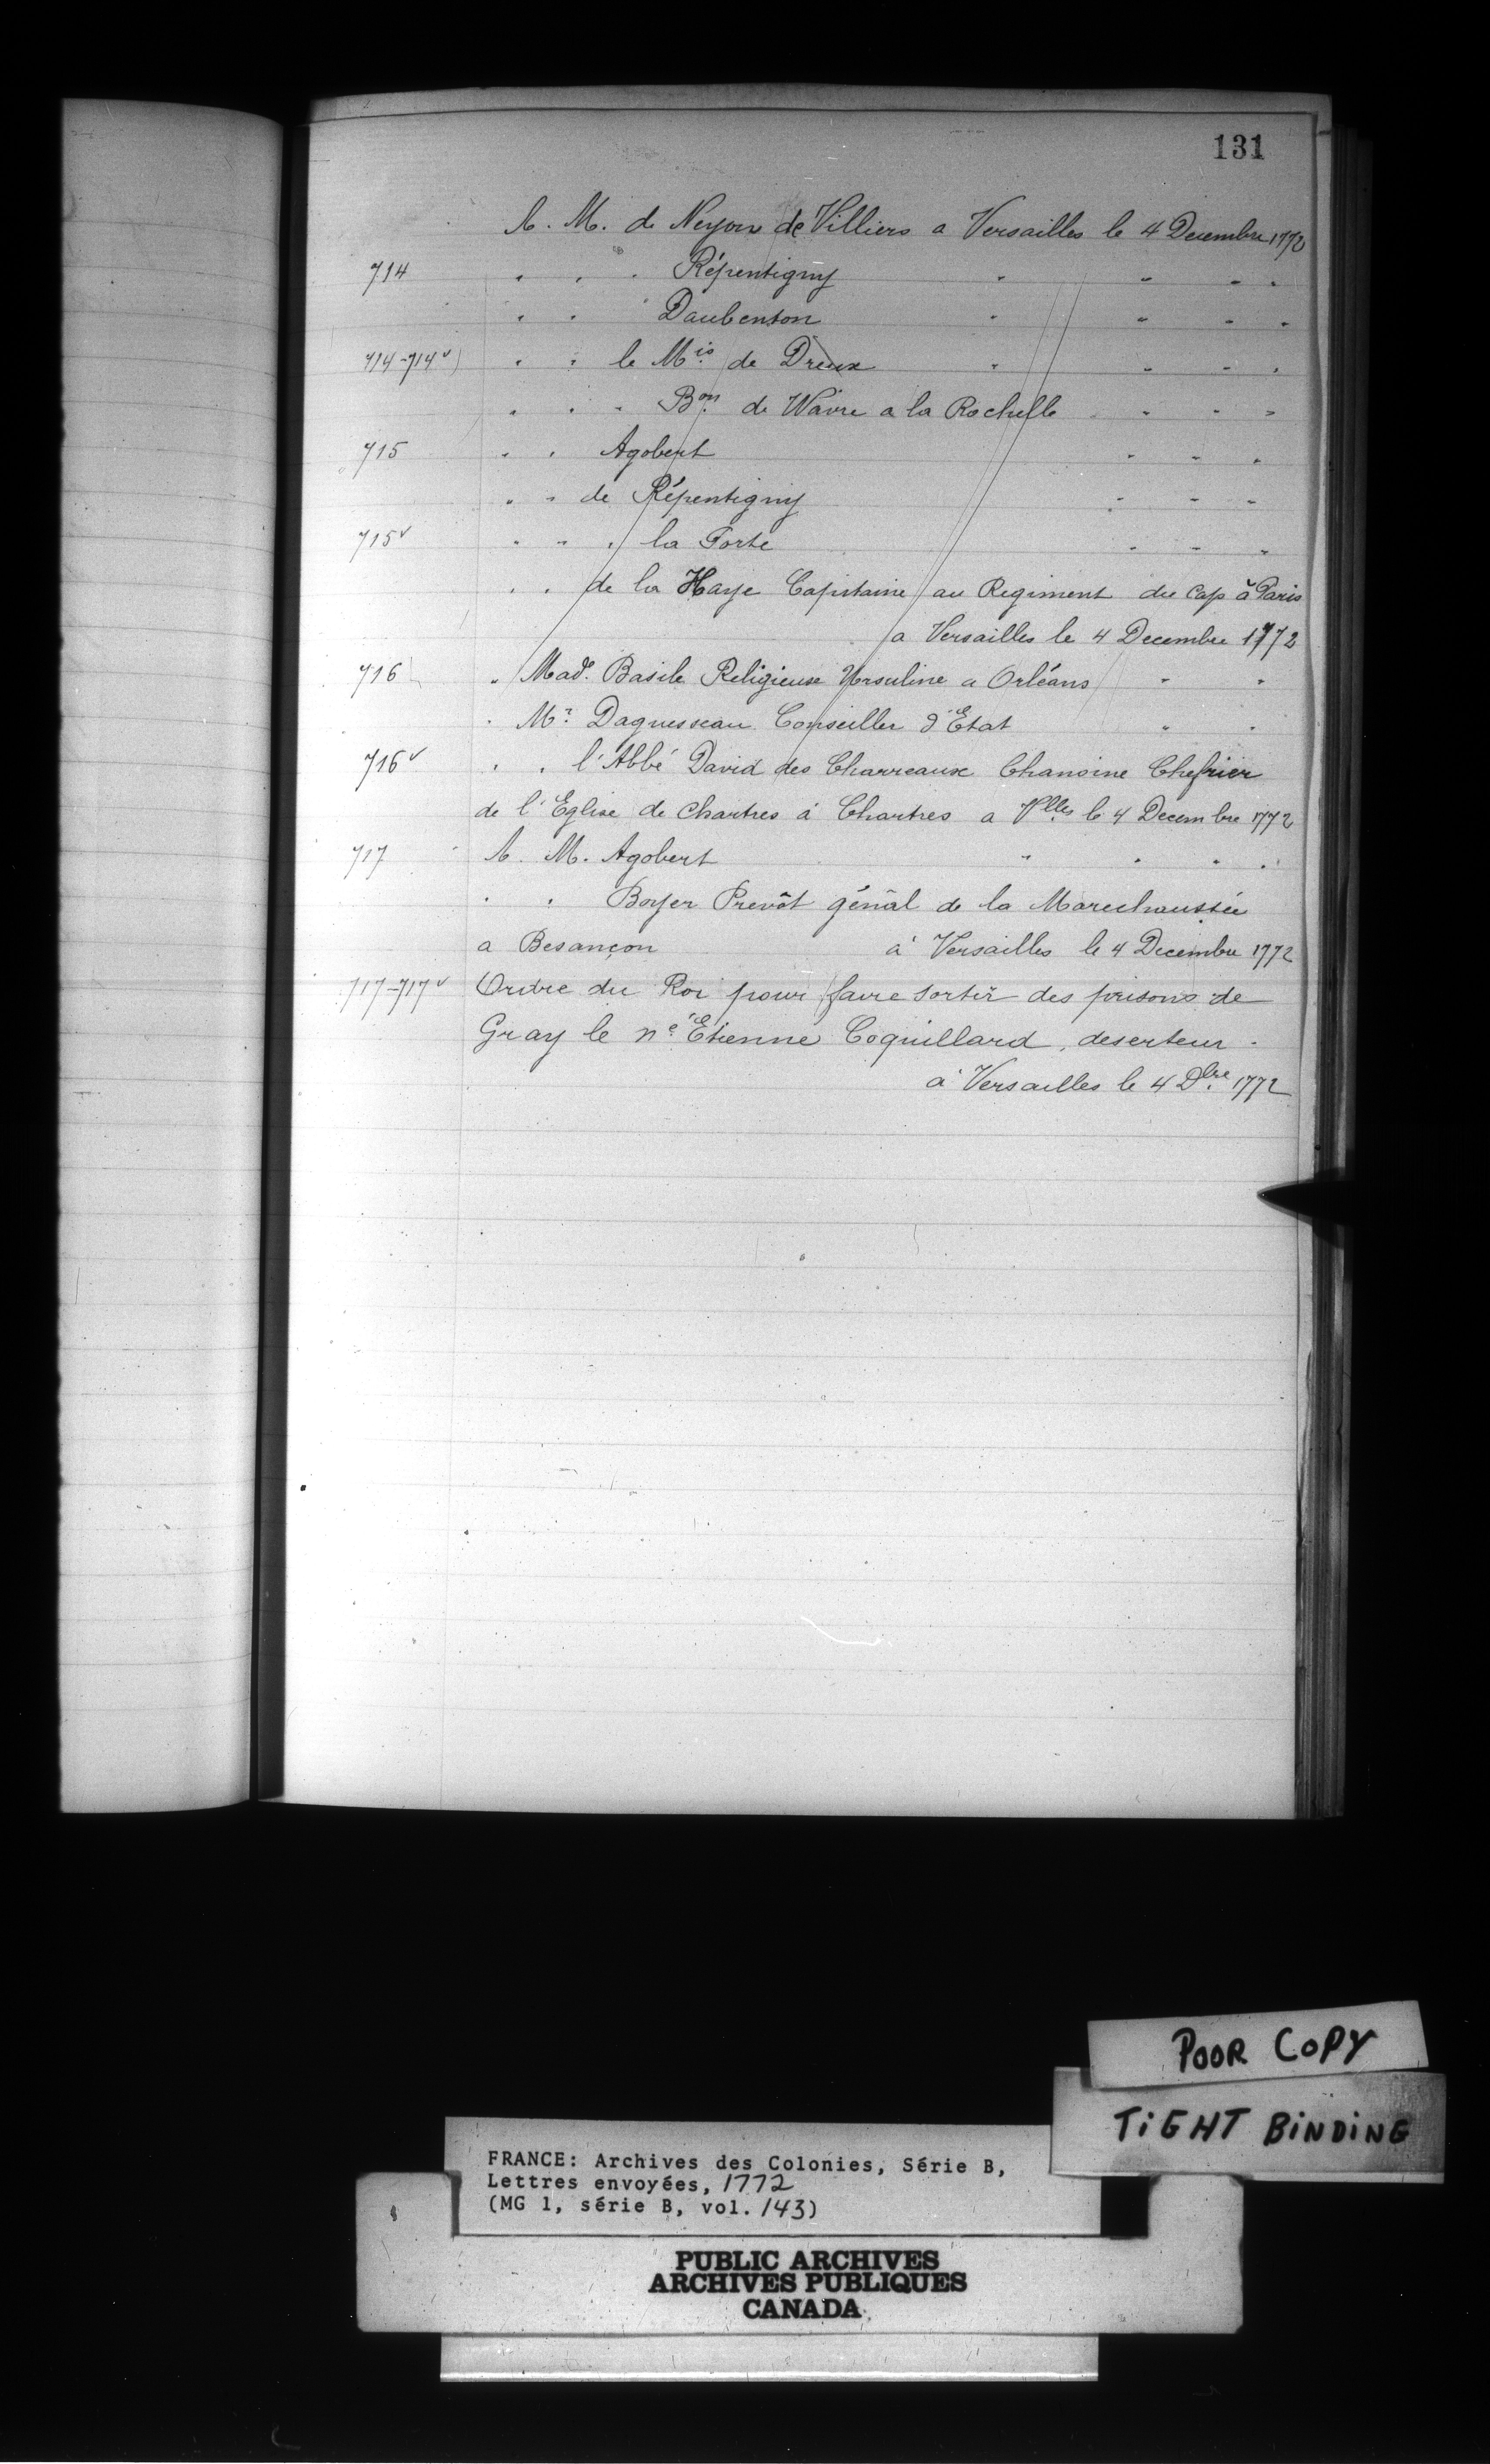 131
A. M. de Neyon de Villiers a Versailles le 4 Decembre 1772
714 " " " Répentigny " " " "
" " Daubenton " " " "
714-714v " " le Mis de Dreux " " " "
" " " Bon de Wavre a la Rochelle " " " "
715 " " Agobert " " "
" " de Répentigny " " "
715v " " " la Porte " " "
" " de la Haye Capitaine au Regiment du Cap à Paris
a Versailles le 4 Decembre 1772
716 " Made Basile Religieuse Ursuline a Orléans " "
" Mr Daguesseau Conseiller d'Etat " "
716v " " l'Abbé David des Charreaux Chanoine Chefcier
de l'Eglise de Chartres à Chartres a Vlles le 4 Decembre 1772
717 A. M. Agobert " " " "
" " Boyer Prevôt génâl de la Marechaussée
a Besançon à Versailles le 4 Decembre 1772
717-717v Ordre du Roi pour faire sortir des prisons de
Gray le né Etienne Coquillard, deserteur.
à Versailles le 4 Dbre 1772
POOR COPY
TIGHT BINDING
FRANCE: Archives des Colonies, Série B,
Lettres envoyées, 1772
(MG 1, série B, vol. 143)
PUBLIC ARCHIVES
ARCHIVES PUBLIQUES
CANADA